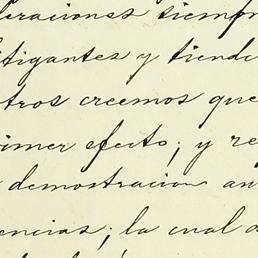 eraciones tiempr
itigantes y tiende
otros creemos que
rimer efecto; y re
demostracion an
encias; la cual d